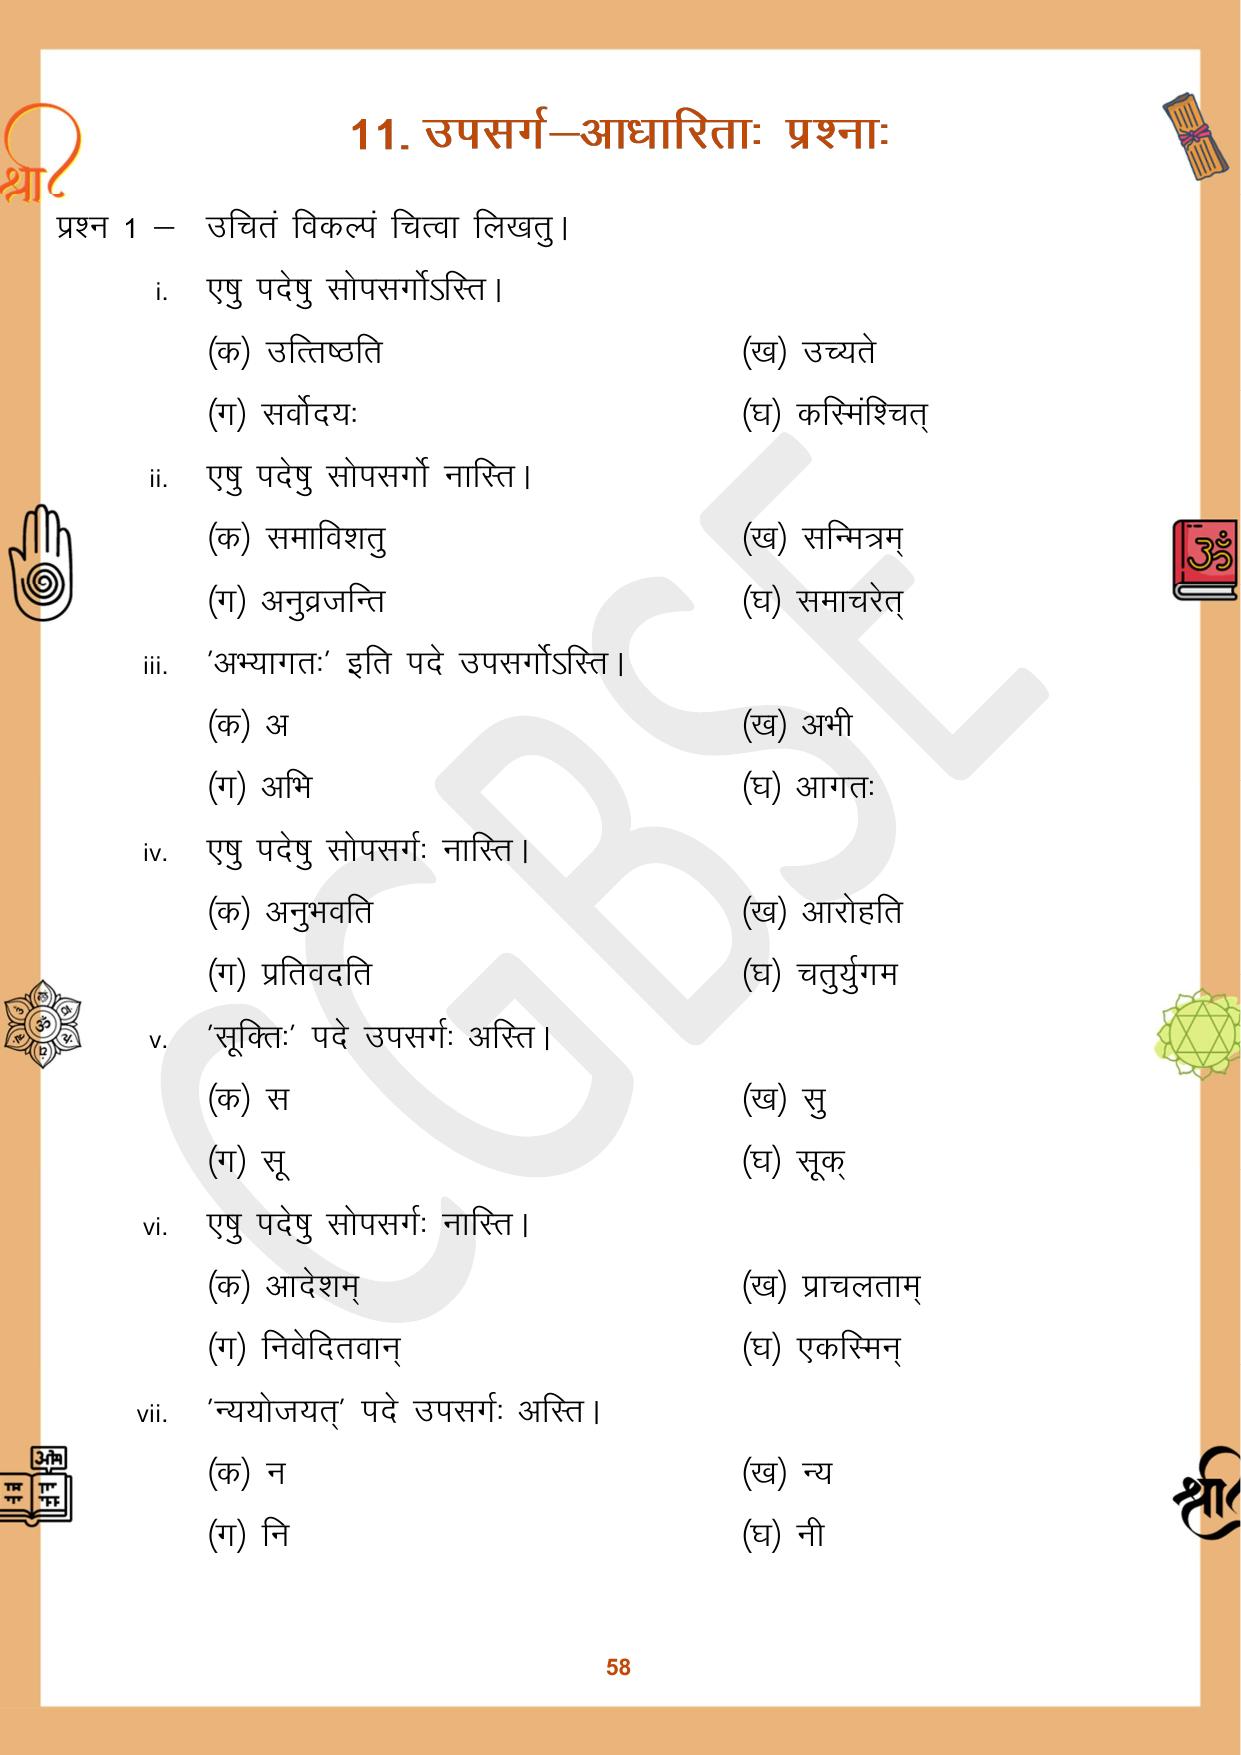 11. उपसर्ग–आधारिताः प्रश्नाः
प्रश्न 1 – उचितं विकल्पं चित्वा लिखतु।
i. एषु पदेषु सोपसर्गोऽस्ति।
(क) उत्तिष्ठति (ख) उच्यते
(ग) सर्वोदयः (घ) कस्मिंश्चित्
ii. एषु पदेषु सोपसर्गो नास्ति।
(क) समाविशतु (ख) सन्मित्रम्
(ग) अनुव्रजन्ति (घ) समाचरेत्
iii. 'अभ्यागतः' इति पदे उपसर्गोऽस्ति।
(क) अ (ख) अभी
(ग) अभि (घ) आगतः
iv. एषु पदेषु सोपसर्गः नास्ति।
(क) अनुभवति (ख) आरोहति
(ग) प्रतिवदति (घ) चतुर्युगम
v. 'सूक्तिः' पदे उपसर्गः अस्ति।
(क) स (ख) सु
(ग) सू (घ) सूक्
vi. एषु पदेषु सोपसर्गः नास्ति।
(क) आदेशम् (ख) प्राचलताम्
(ग) निवेदितवान् (घ) एकस्मिन्
vii. 'न्ययोजयत्' पदे उपसर्गः अस्ति।
(क) न (ख) न्य
(ग) नि (घ) नी
58
CGBSE
श्री
ॐ
श्री